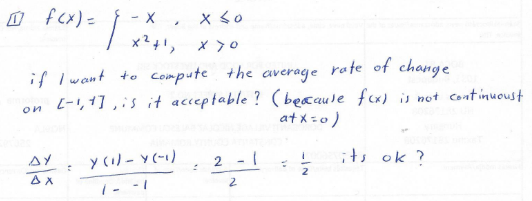 1 f(x) = { -x , x ≤ 0
x²+1, x > 0
if I want to compute the average rate of change
on [-1,1], is it acceptable? (because f(x) is not continuoust
at x=0)
Δy/Δx = y(1) - y(-1) / 1 - -1 = 2 - 1 / 2 = 1/2 its ok ?